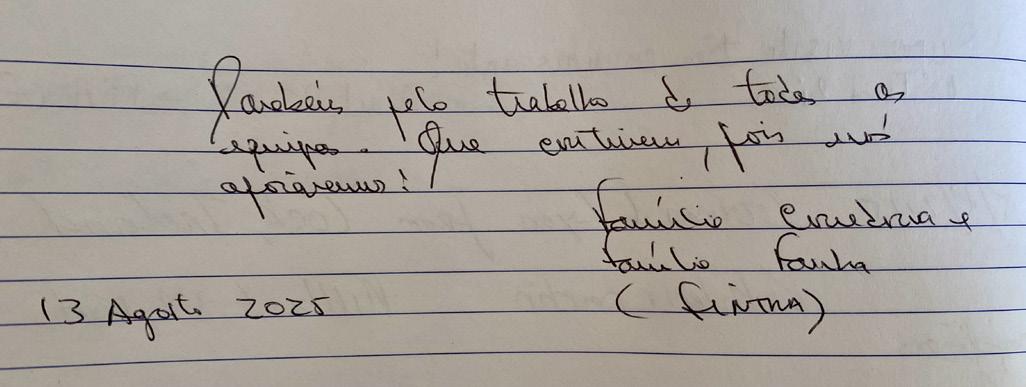 Parabéns pelo trabalho de todas as
equipas. Que continuem, pois nós
apoiaremos!
família e
família Fanha
(SINTRA)
13 Agosto 2025